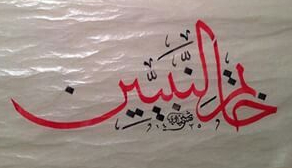 خاتم النَّبِيِّين